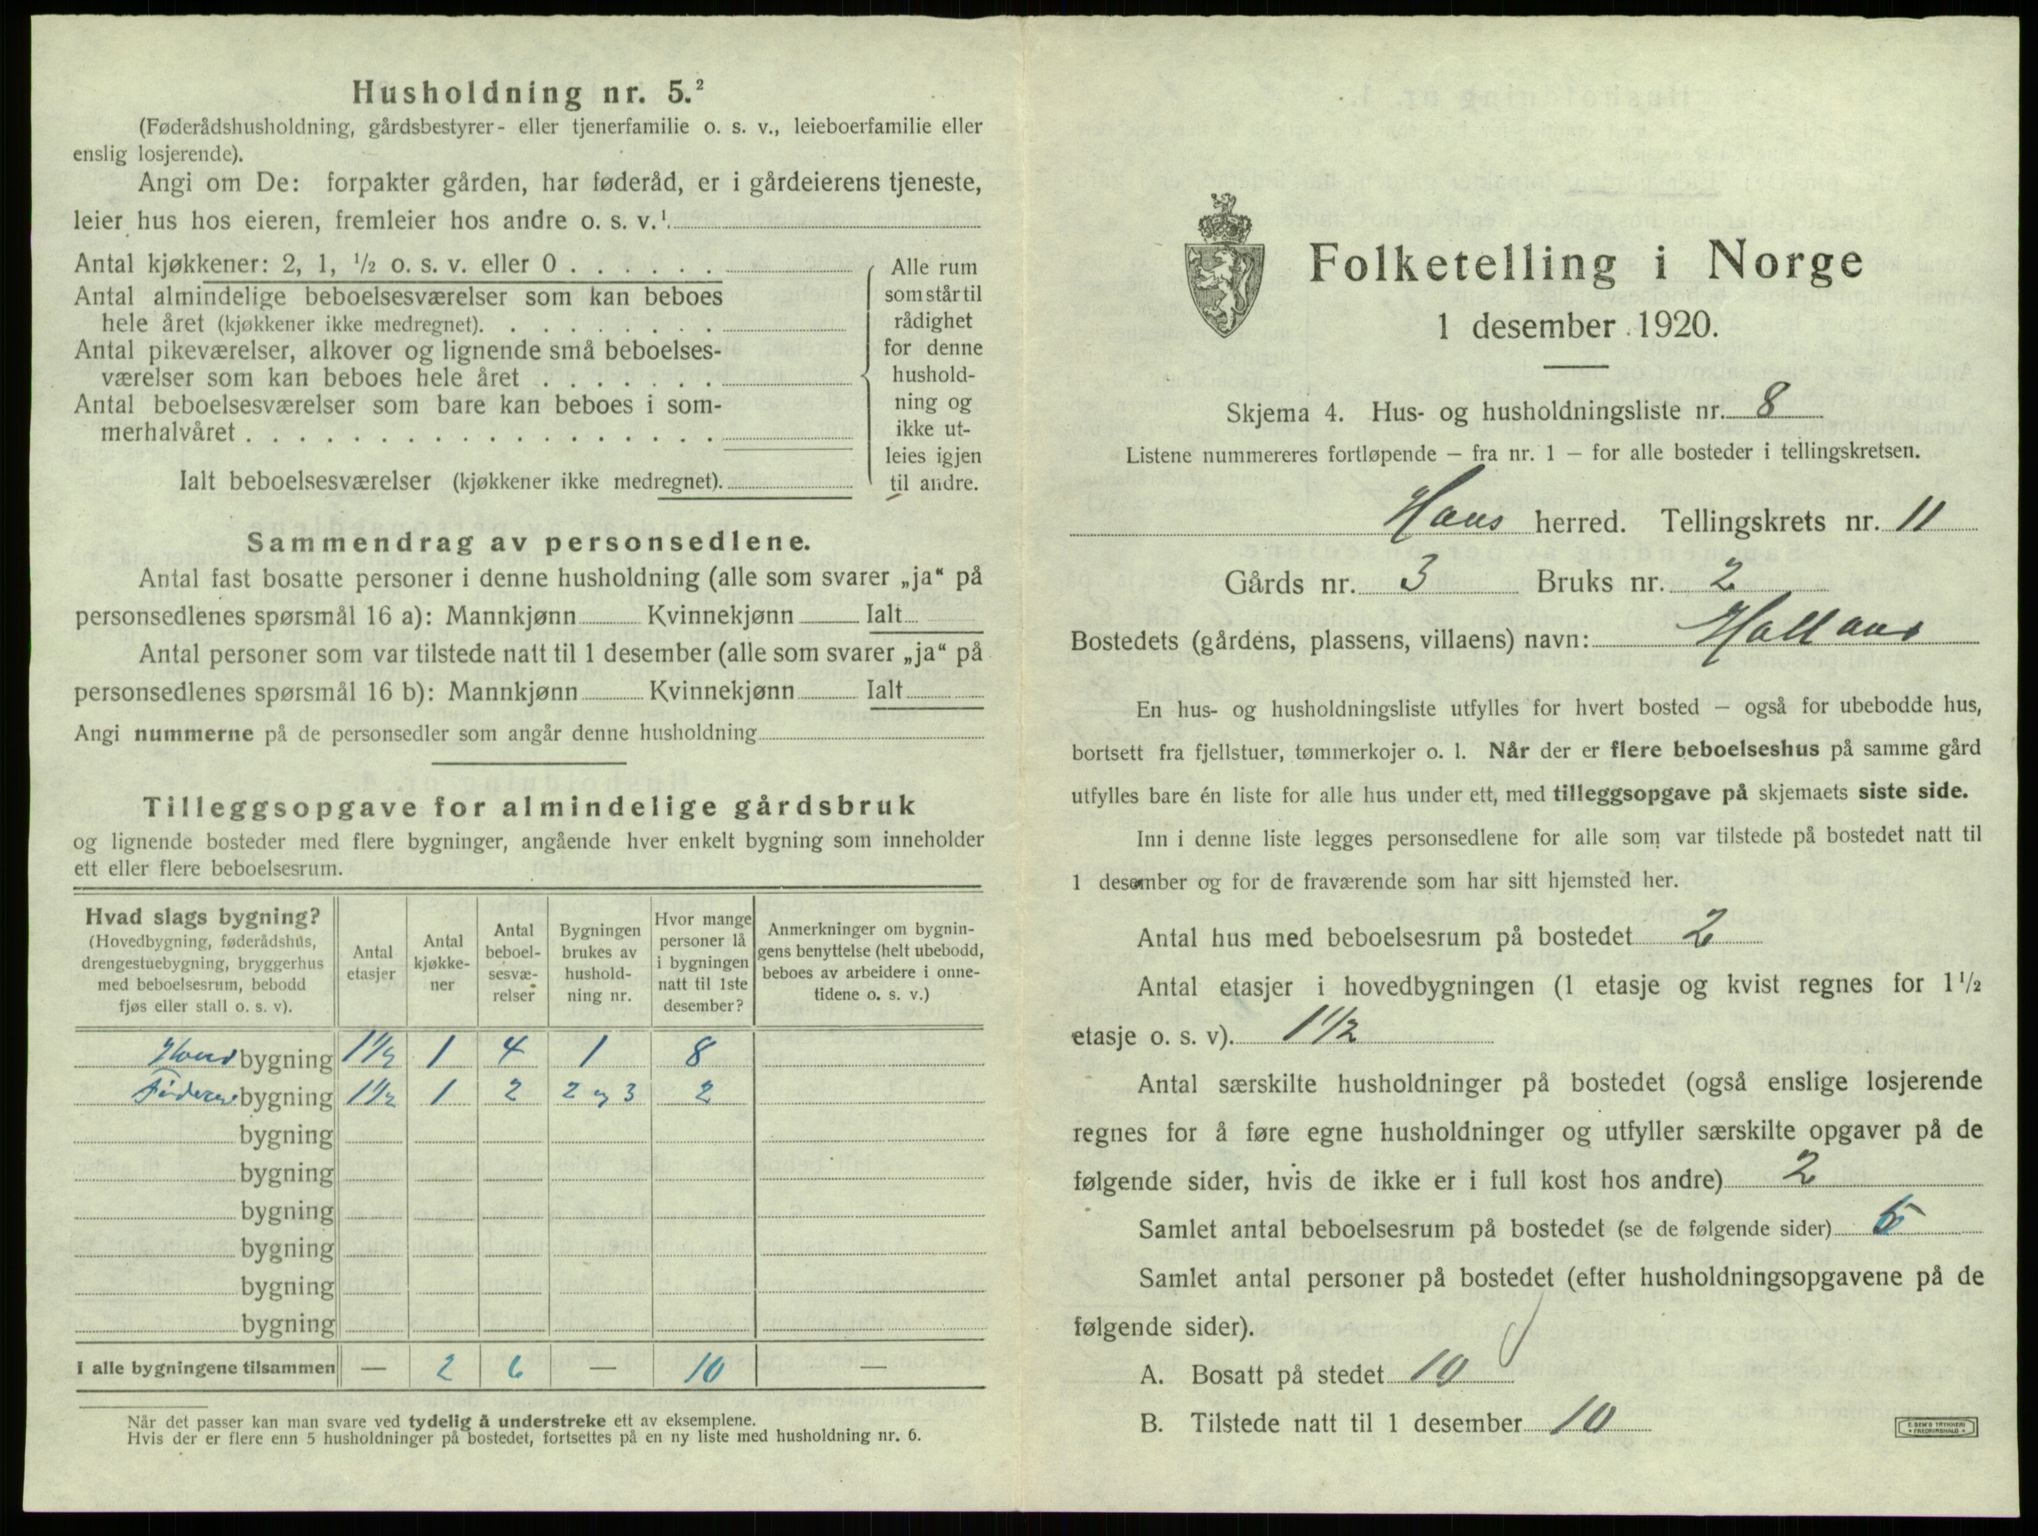 Husholdning nr. 5.²
(Føderådshusholdning, gårdsbestyrer- eller tjenerfamilie o. s. v., leieboerfamilie eller
enslig losjerende).
Angi om De: forpakter gården, har føderåd, er i gårdeierens tjeneste,
leier hus hos eieren, fremleier hos andre o. s. v.¹
Antal kjøkkener: 2, 1, ½ o. s. v. eller 0
Antal almindelige beboelsesværelser som kan beboes
hele året (kjøkkener ikke medregnet).
Antal pikeværelser, alkover og lignende små beboelses-
værelser som kan beboes hele året
Antal beboelsesværelser som bare kan beboes i som-
merhalvåret
Ialt beboelsesværelser (kjøkkener ikke medregnet).
Alle rum
som står til
rådighet
for denne
hushold-
ning og
ikke ut-
leies igjen
til andre.
Sammendrag av personsedlene.
Antal fast bosatte personer i denne husholdning (alle som svarer „ja“ på
personsedlenes spørsmål 16 a): Mannkjønn Kvinnekjønn Ialt
Antal personer som var tilstede natt til 1 desember (alle som svarer „ja“ på
personsedlenes spørsmål 16 b): Mannkjønn Kvinnekjønn Ialt
Angi nummerne på de personsedler som angår denne husholdning
Tilleggsopgave for almindelige gårdsbruk
og lignende bosteder med flere bygninger, angående hver enkelt bygning som inneholder
ett eller flere beboelsesrum.
Hvad slags bygning?
(Hovedbygning, føderådshus,
drengestuebygning, bryggerhus
med beboelsesrum, bebodd
fjøs eller stall o. s. v).
Antal
etasjer
Antal
kjøkke-
ner
Antal
beboel-
sesvæ-
relser
Bygningen
brukes av
hushold-
ning nr.
Hvor mange
personer lå
i bygningen
natt til 1ste
desember?
Anmerkninger om bygnin-
gens benyttelse (helt ubebodd,
beboes av arbeidere i onne-
tidene o. s. v.)
bygning 1½ 1 4 1 8
bygning 1½ 1 2 2 og 3 2
bygning
bygning
bygning
bygning
bygning
bygning
I alle bygningene tilsammen — 2 6 — 10 —
Når det passer kan man svare ved tydelig å understreke ett av eksemplene.
Hvis der er flere enn 5 husholdninger på bostedet, fortsettes på en ny liste med husholdning nr. 6.
Folketelling i Norge
1 desember 1920.
Skjema 4. Hus- og husholdningsliste nr. 8
Listene nummereres fortløpende — fra nr. 1 — for alle bosteder i tellingskretsen.
Haus herred. Tellingskrets nr. 11
Gårds nr. 3 Bruks nr. 2
Bostedets (gårdens, plassens, villaens) navn:
En hus- og husholdningsliste utfylles for hvert bosted — også for ubebodde hus,
bortsett fra fjellstuer, tømmerkojer o. l. Når der er flere beboelseshus på samme gård
utfylles bare én liste for alle hus under ett, med tilleggsopgave på skjemaets siste side.
Inn i denne liste legges personsedlene for alle som var tilstede på bostedet natt til
1 desember og for de fraværende som har sitt hjemsted her.
Antal hus med beboelsesrum på bostedet 2
Antal etasjer i hovedbygningen (1 etasje og kvist regnes for 1½
etasje o. s. v). 1½
Antal særskilte husholdninger på bostedet (også enslige losjerende
regnes for å føre egne husholdninger og utfyller særskilte opgaver på de
følgende sider, hvis de ikke er i full kost hos andre) 2
Samlet antal beboelsesrum på bostedet (se de følgende sider)
Samlet antal personer på bostedet (efter husholdningsopgavene på de
følgende sider).
A. Bosatt på stedet 10
B. Tilstede natt til 1 desember 10